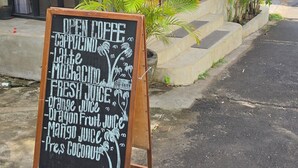 OPEN COFFEE
-CAPPUCINO
-Latte
-Mochacino
FRESH JUICE
-Orange Juice
-Dragon Fruit Juice
-Mango Juice
-Fres,Coconut